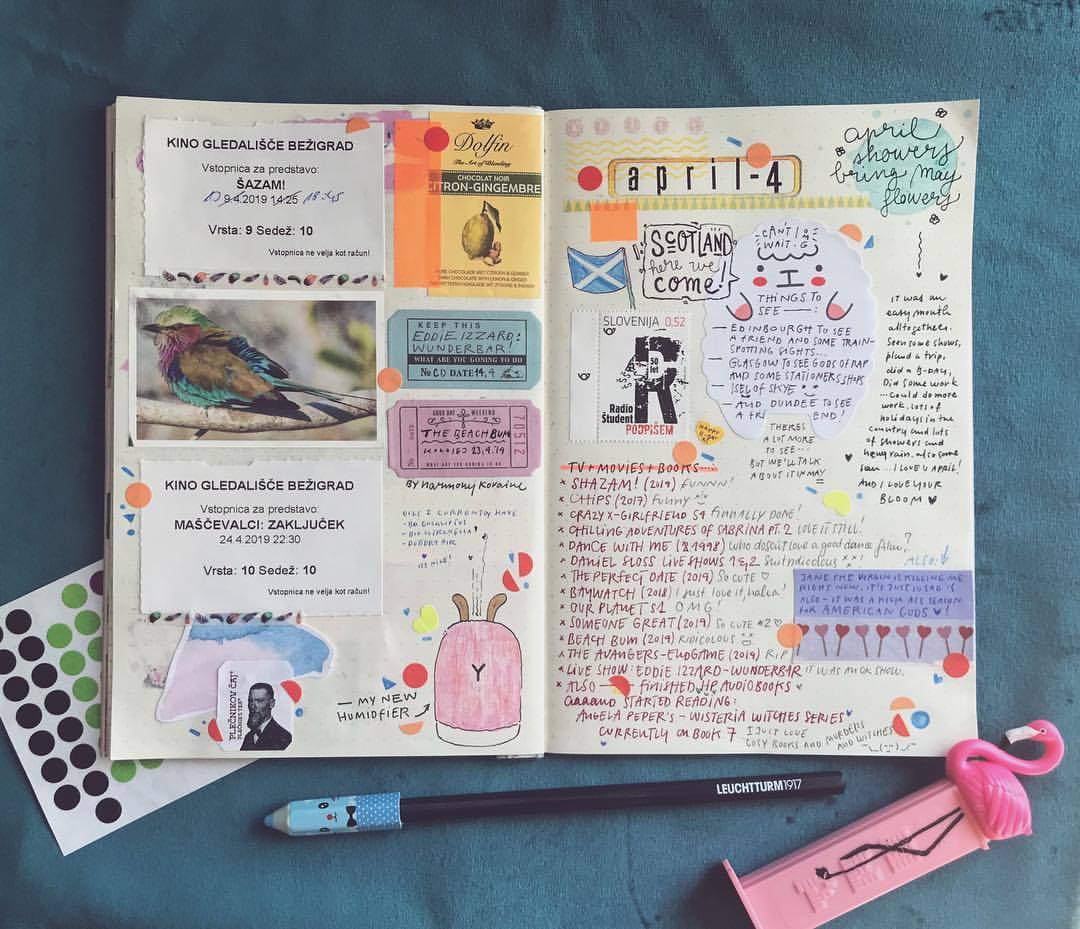 KINO GLEDALIŠČE BEŽIGRAD
Vstopnica za predstavo:
ŠAZAM!
9.4.2019 14:25 18:45
Vrsta: 9 Sedež: 10
Vstopnica ne velja kot račun!
Dolfin
The Art of Blending
CHOCOLAT NOIR
CITRON-GINGEMBRE
KEEP THIS
EDDIE IZZARD:
WUNDERBAR!
WHAT ARE YOU GOING TO DO
No CD DATE 14.4
GOOD DAY WEEKEND
THE BEACH BUM
KOLOSEJ 23.4.19
WHAT ARE YOU GOING TO DO
70512
BY HARMONY KORAINE
KINO GLEDALIŠČE BEŽIGRAD
Vstopnica za predstavo:
MAŠČEVALCI: ZAKLJUČEK
24.4.2019 22:30
Vrsta: 10 Sedež: 10
Vstopnica ne velja kot račun!
OILS I CURRENTLY HAVE
PLEČNIKOV ČAJ
PLEČNIK'S TEA
— MY NEW
HUMIDFIER
Y
april-4
april
showers
bring may
flowers
SCOTLAND
here we
come!
CAN'T
WAIT
THINGS TO
SEE:
— EDINBOURGH TO SEE
A FRIEND AND SOME TRAIN-
SPOTTING SIGHTS...
— GLASGOW TO SEE GODS OF RAP
AND SOME STATIONERS SHIPS
— ISEL OF SKYE
— AND DUNDEE TO SEE
A FRIEND!
THERE'S
A LOT MORE
TO SEE...
BUT WE'LL TALK
ABOUT IT IN MAY
SLOVENIJA 0,52
R
50
let
Radio
Študent
PODPIŠEM
HAPPY
it was an
easy mouth
alltogethers.
Seen some shows,
pland a trip,
did a B-DAY,
Did some work
...could do more
work, lots of
holidays in the
country and lots
of showers and
heavy rain, also some
sun...I love april!
AND I LOVE YOUR
BLOOM ♥
TV+MOVIES+BOOKS
× SHAZAM! (2019) FUNNN!
× CHIPS (2017) FUNNY
× CRAZY X-GIRLFRIEND S4 FINNALLY DONE!
× CHILLING ADVENTURES OF SABRINA PT. 2 LOVE IT STILL!
× DANCE WITH ME (1998) who doesn't love a good dance film?
× DANIEL SLOSS LIVE SHOWS 1&2
× THE PERFECT DATE (2019) SO CUTE ♡
× BAYWATCH (2018) I just love it, haha!
× OUR PLANET S1 OMG!
× SOMEONE GREAT (2019) SO CUTE #2 ♡
× BEACH BUM (2019) RIDICOLOUS
× THE AVANGERS-ENDGAME (2019) RIP
× LIVE SHOW: EDDIE IZZARD-WUNDERBAR IT WAS AN OK SHOW.
× ALSO → FINISHED HP AUDIOBOOKS
aaaand STARTED READING:
ANGELA PEPER'S - WISTERIA WITCHES SERIES
CURRENTLY ON BOOK 7 I JUST LOVE
COSY BOOKS AND MURDERS
AND WITCHES
ALSO:
JANE THE VIRGIN IS KILLING ME
RIGHT NOW. IT'S JUST SO SAD IS
ALSO - IT WAS A HIGH ASS SEASON
FOR AMERICAN GODS ♥!
LEUCHTTURM1917